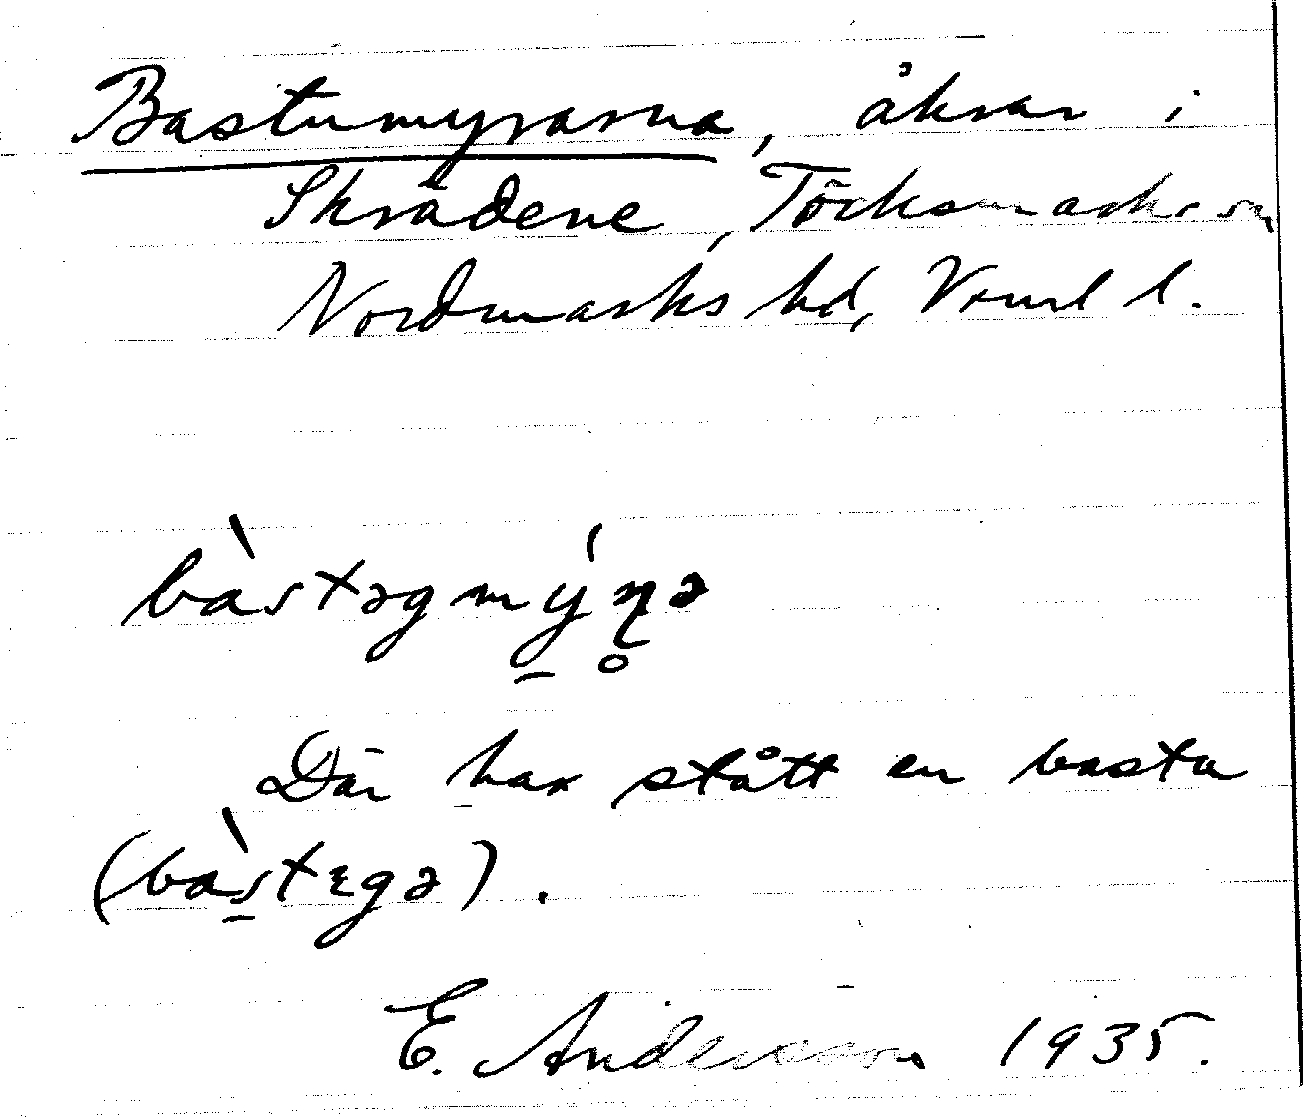 Bastumyrarna, åkrar i
Skrädene, Töcksmarks sn
Nordmarks hd, Vrml l.
bàstəgmýn̥ə
Där har stått en basta
(bàstɛgə).
E. Andersson 1935.